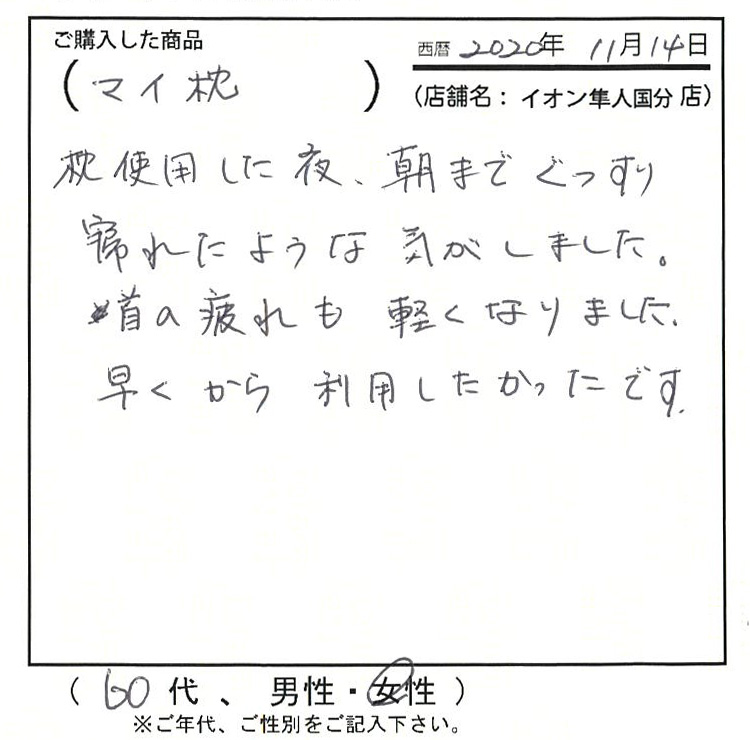 ご購入した商品
西暦 2020年 11月14日
(マイ枕)
(店舗名：イオン隼人国分 店)
枕使用した夜、朝までぐっすり
寝れたような気がしました。
首の疲れも軽くなりました。
早くから利用したかったです。
(60代、男性・女性)
※ご年代、ご性別をご記入下さい。